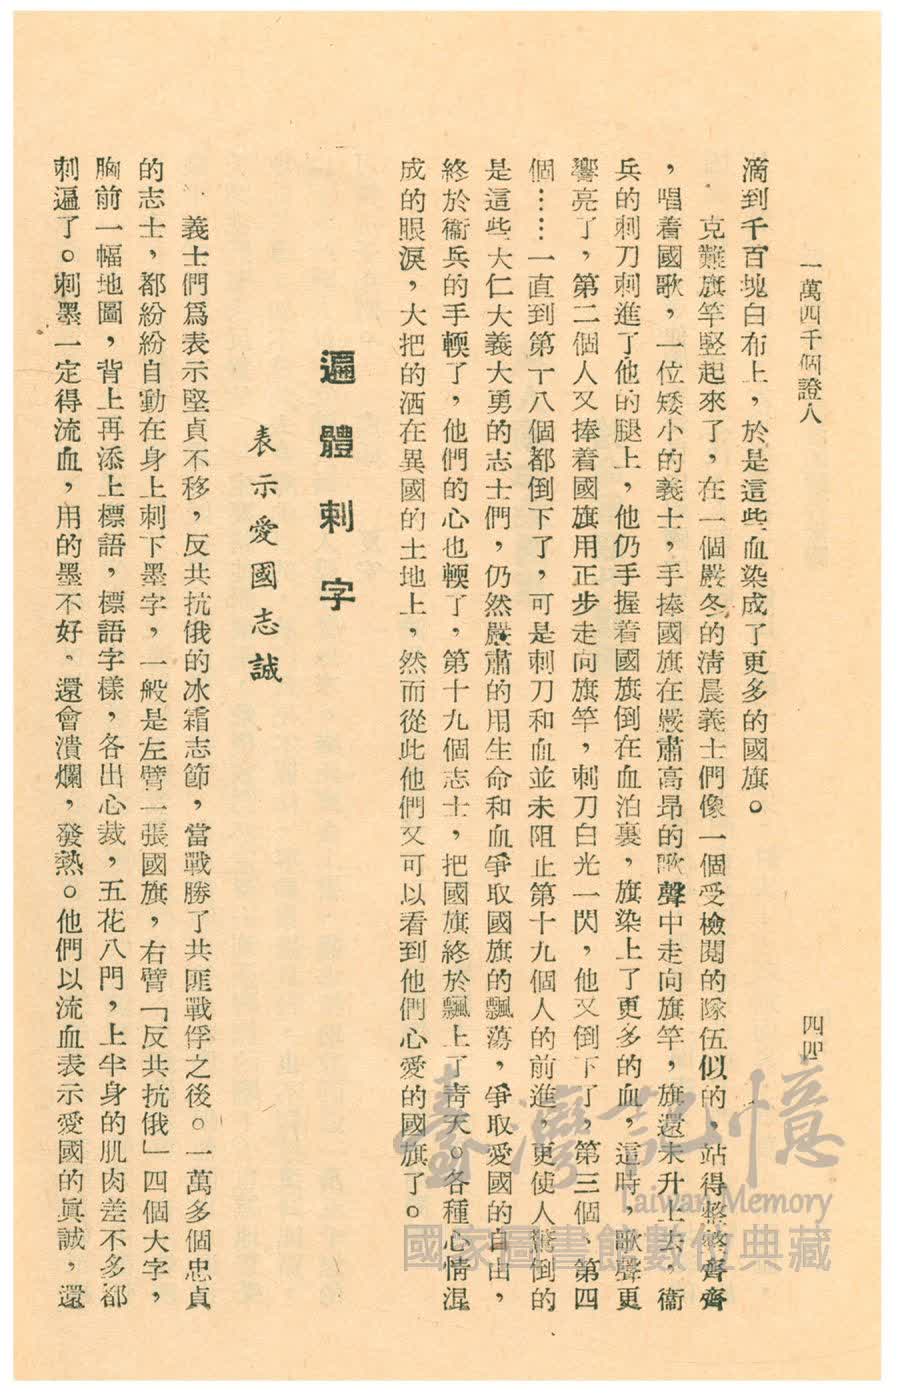 一萬四千個證人
四四
滴到千百塊白布上，於是這些血染成了更多的國旗。
克難旗竿竪起來了，在一個嚴冬的淸晨義士們像一個受檢閱的隊伍似的，站得整整齊齊
，唱着國歌，一位矮小的義士，手捧國旗在嚴肅高昂的歌聲中走向旗竿，旗還未升上去，衞
兵的刺刀刺進了他的腿上，他仍手握着國旗倒在血泊裏，旗染上了更多的血，這時，歌聲更
響亮了，第二個人又捧着國旗用正步走向旗竿，刺刀白光一閃，他又倒下了，第三個、第四
個……一直到第十八個都倒下了，可是刺刀和血並未阻止第十九個人的前進，更使人驚倒的
是這些大仁大義大勇的志士們，仍然嚴肅的用生命和血爭取國旗的飄蕩，爭取愛國的自由，
終於衞兵的手輭了，他們的心也輭了，第十九個志士，把國旗終於飄上了靑天。各種心情湼
成的眼淚，大把的洒在異國的土地上，然而從此他們又可以看到他們心愛的國旗了。
遍體刺字
表示愛國志誠
義士們爲表示堅貞不移，反共抗俄的冰霜志節，當戰勝了共匪戰俘之後。一萬多個忠貞
的志士，都紛紛自動在身上刺下墨字，一般是左臂一張國旗，右臂「反共抗俄」四個大字，
胸前一幅地圖，背上再添上標語，標語字樣，各出心裁，五花八門，上半身的肌肉差不多都
刺逼了。刺墨一定得流血，用的墨不好。還會潰爛，發熱。他們以流血表示愛國的眞誠，還
臺灣記憶
Taiwan Memory
國家圖書館數位典藏